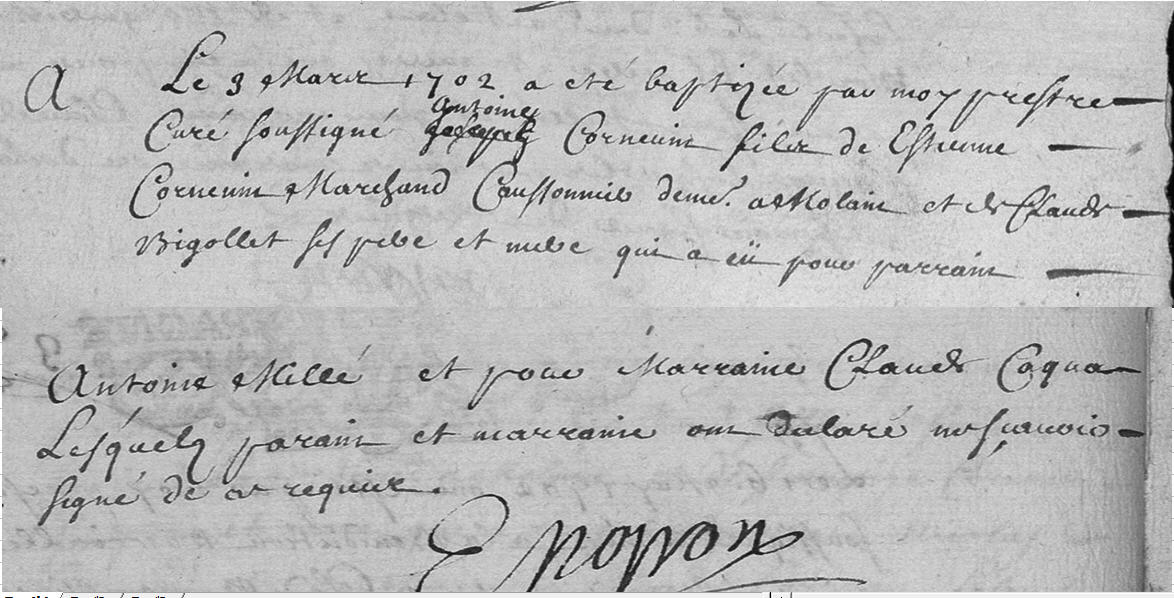 A Le 9 Mars 1702 a eté baptizée par moy prestre
Antoine
Curé soussigné Corneuin fils de Estienne
Corneuin Marchand demt. a Molain et de Claude
Bigollet ses pere et mere qui a eü pour parrain
Antoine Millé et pour Marraine Claude Caqua
Lesquels parain et marraine ont declaré ne sçauoir
signé de ce requis.